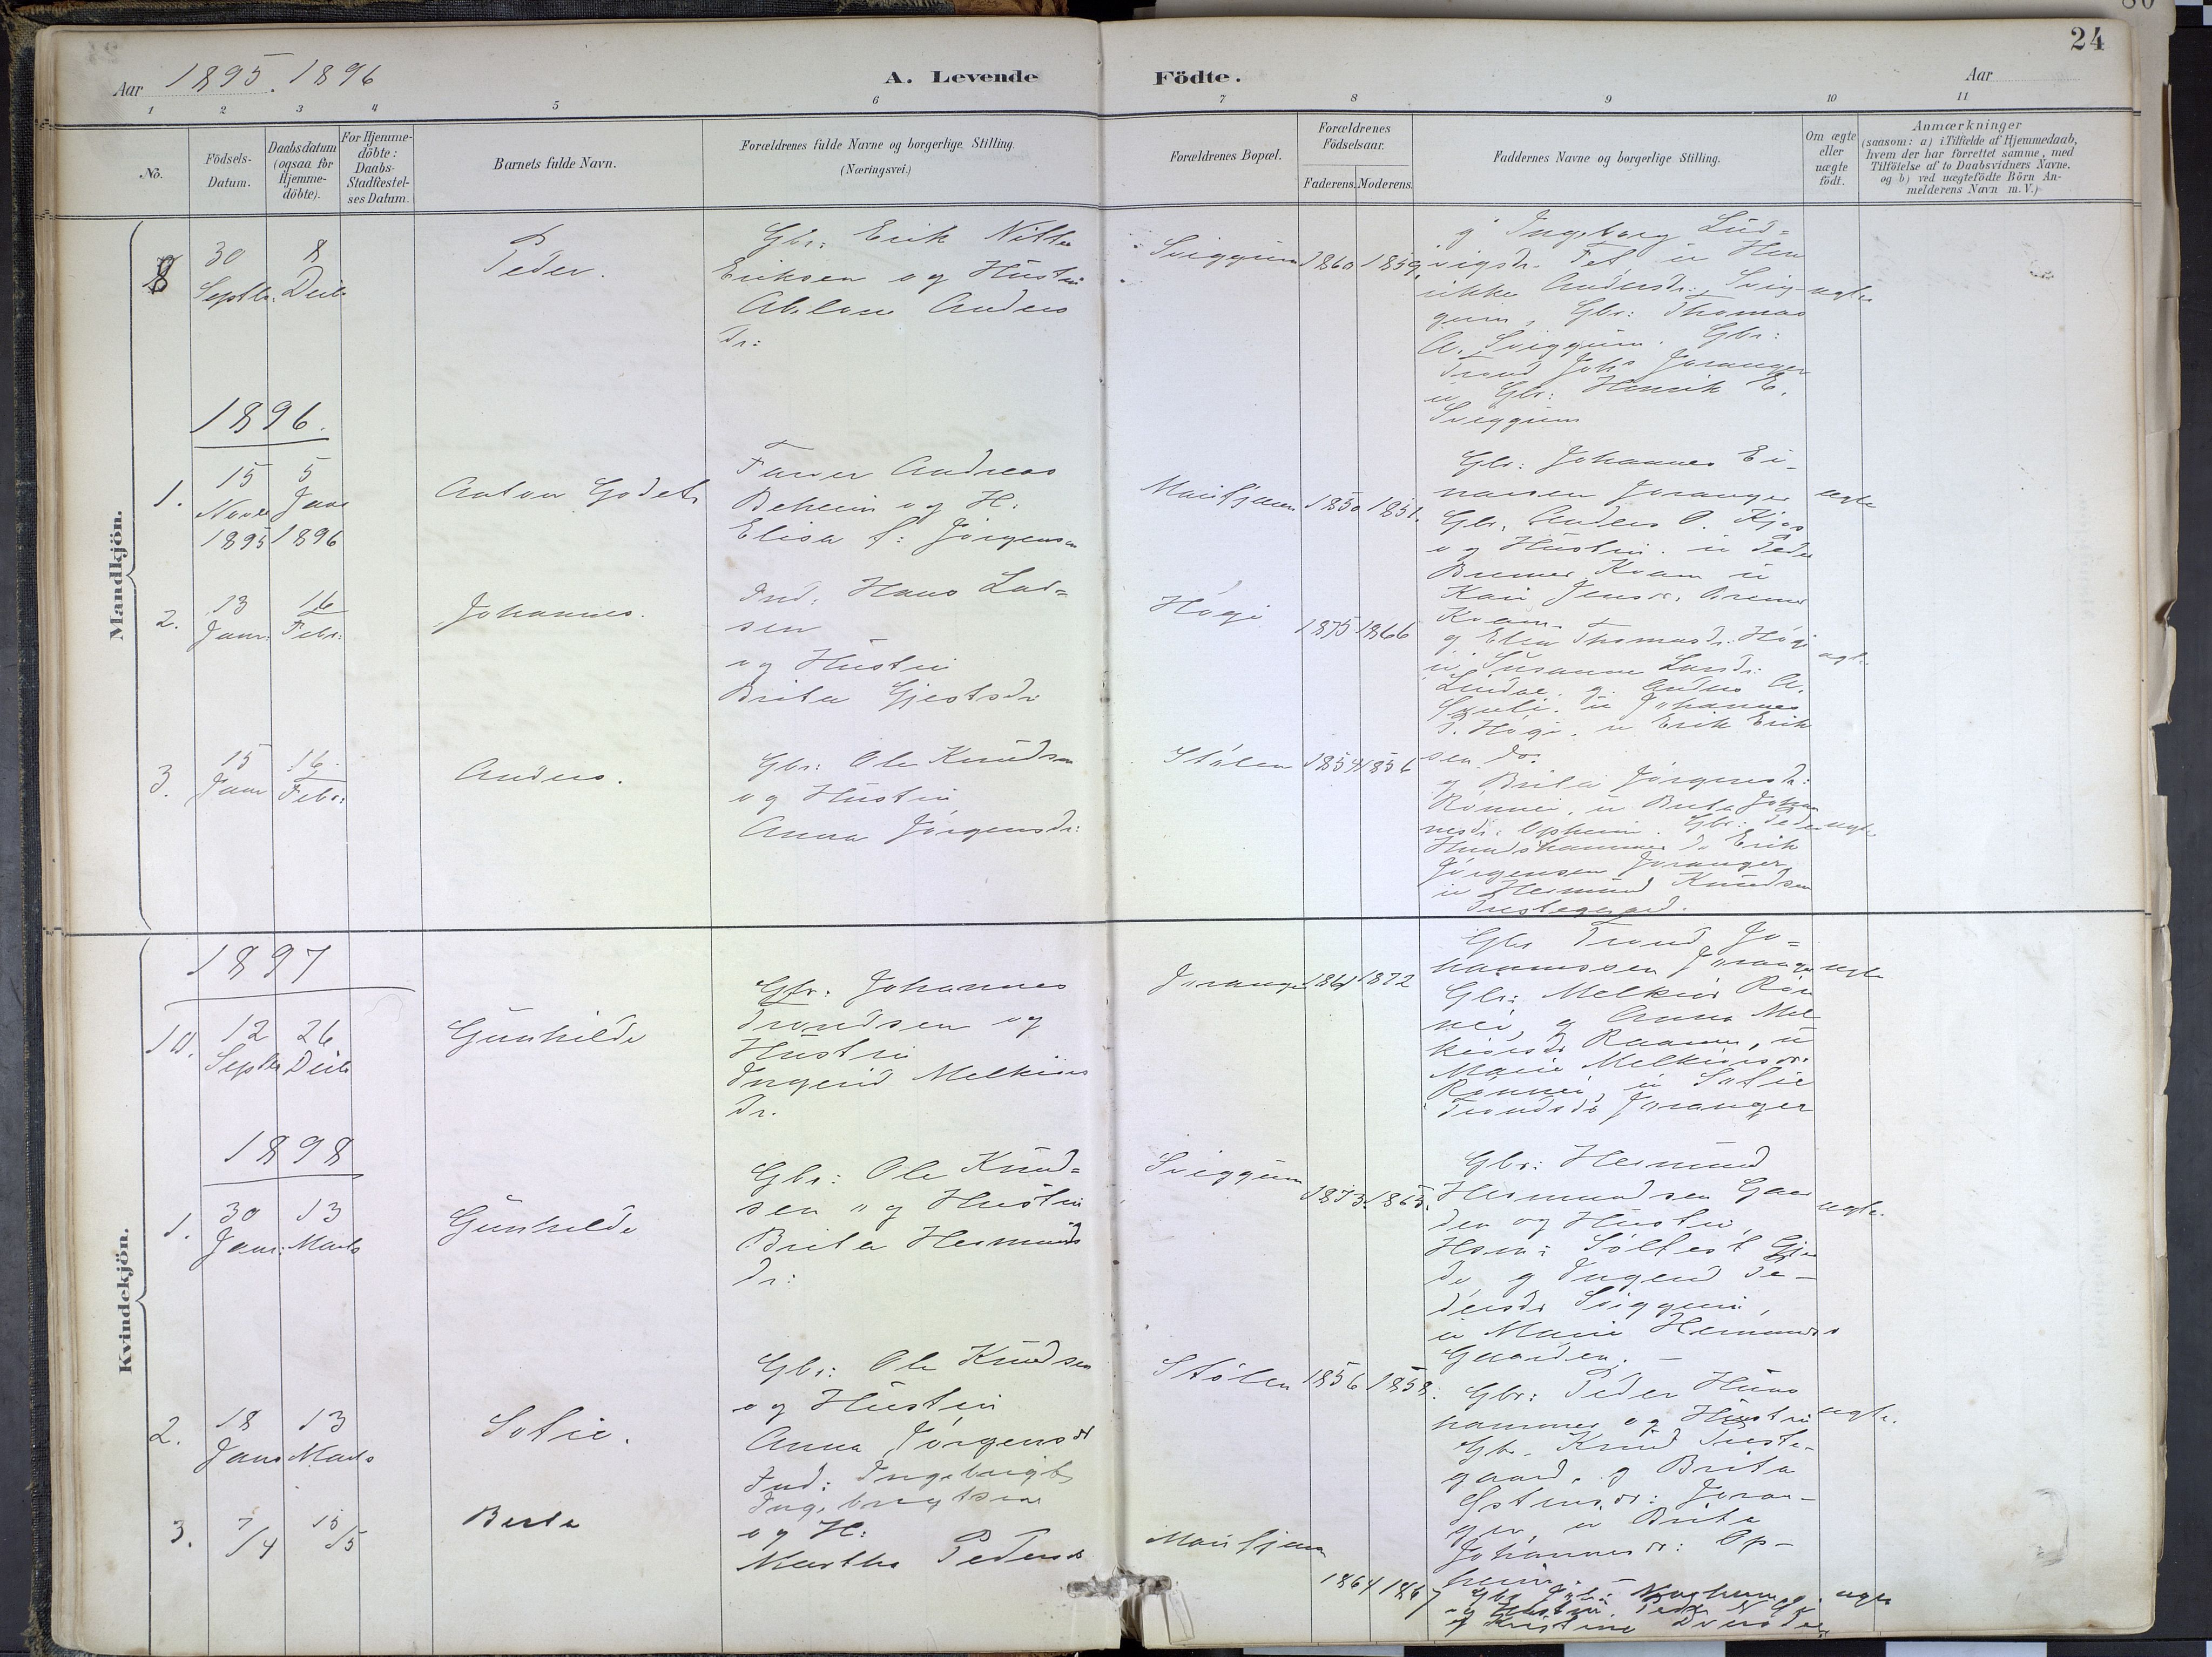 24
Aar 1895. 1896
A. Levende Födte.
Aar
1 2 3 4 5 6 7 8 9 10 11
No.
Födsels-
Datum.
Daabsdatum
(ogsaa for
Hjemme-
döbte).
For Hjemme-
döbte:
Daabs-
Stadfæstel-
ses Datum.
Barnets fulde Navn.
Forældrenes fulde Navne og borgerlige Stilling.
(Næringsvei.)
Forældrenes Bopæl.
Forældrenes
Födselsaar.
Faderens. Moderens.
Faddernes Navne og borgerlige Stilling.
Om ægte
eller
uægte
födt.
Anmærkninger
(saasom: a) i Tilfælde af Hjemmedaab,
hvem der har forrettet samme, med
Tilföielse af to Daabsvidners Navne,
og b) ved uægtefödte Börn An-
melderens Navn m. V.)
Mandkjön.
8
30
Septbr.
8
Decb.
Peder.
Gbr: Erik Nitter
Eriksen og Hustru
Abelone Anders
Dr:
Sviggum
1860 1859
g Ingeborg Lud=
vigsdr. Fet, u Hen
rikke Andersdr., Svig
gum, Gbr: Thomas
A. Sviggum. Gbr:
Trond Johs Joranger
u Gbr: Henrik E.
Sviggum
ægte
1896.
1.
15
Novbr
1895
5
Janr
1896
Anton Godets
Farver Andreas
Beheim og H.
Elisa f: Jörgensen
Marifjæren
1850 1851.
Gbr: Johannes Ei-
narsen Joranger
Gbr. Anders O. Kjos
og Hustru. u Peder
Bremer Kvam u
Kari Jensdr. Bremer
Kvam.
ægte
2.
13
Janr:
16
Febr:
Johannes.
Ind: Hans Lad=
sen
og Hustru
Brita Gjestsdr
Högi
1875 1866
g Elen Thomasdr. Högi
u Susanne Larsdr:
Lindæ. g. Anders A.
u Johannes
P. Högi. u Erik Erik
sen do.
ægte
3.
15
Janr
16.
Febr:
Anders.
Gbr: Ole Knudsen
og Hustru
Anna Jörgensdr:
Stölen
1854 1856
g Brita Jörgensdr:
Rönnei, u Brita Johan
nesdr: Opheim. Gbr: Peder
Hundshammer do Erik
Jörgensen Joranger
u Hermund Knudsen
Prestegaard.
ægte
Kvindekjön.
1897
10.
12
Septbr
26
Decb
Gunhilde
Gbr. Johannes
Trondsen og
Hustru
Ingerid Melkiors
Dr.
Joranger
1861 1872
Gbr Trond Jo=
hannessen Joranger
Gbr: Melkior Rön
nei, g Anna Mel
kiorsdr Raaum, u
Marie Melkiorsdr.
Rönnei, u Sofie
Trondsdr Joranger
ægte
1898
1.
30
Janr:
13
Marts
Gunhilde
Gbr: Ole Knud=
sen og Hustru
Brita Hermunds
Dr:
Sviggum
1873. 1865.
Gbr: Hermund
Hermundsen Gaar
den og Hustru,
g Ingerid Pe-
dersdr Sviggum,
u Marie Hermunds
Gaarden. -
ægte.
2.
18
Janr
13
Marts
Sofie.
Gbr: Ole Knudsen
og Hustru
Anna Jörgensdr
Stölen
1856 1858.
Gbr: Peder Huns
hammer og Hustru
Gbr. Knud Preste-
gaard. g Brita
Joran-
ger, u Brita
Johannesdr: Op-
heim.
ægte.
3.
7/4
15/5
Berta
Ind: Ingebrigt
Ingebrigtsen
og H:
Martha Pedersdr
Marifjæren
1864 1867
og Hustru. Peder
g Kristine
ægte